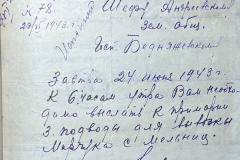 № 78.
Шефу Андреевской
Зем. общ.
Гсп. Бедняжевском
Завтра 24 июня 1943 г.
К 6 часам утра Вам необхо-
димо выслать к примарии
3 подводы для вывозки
с мельниц.